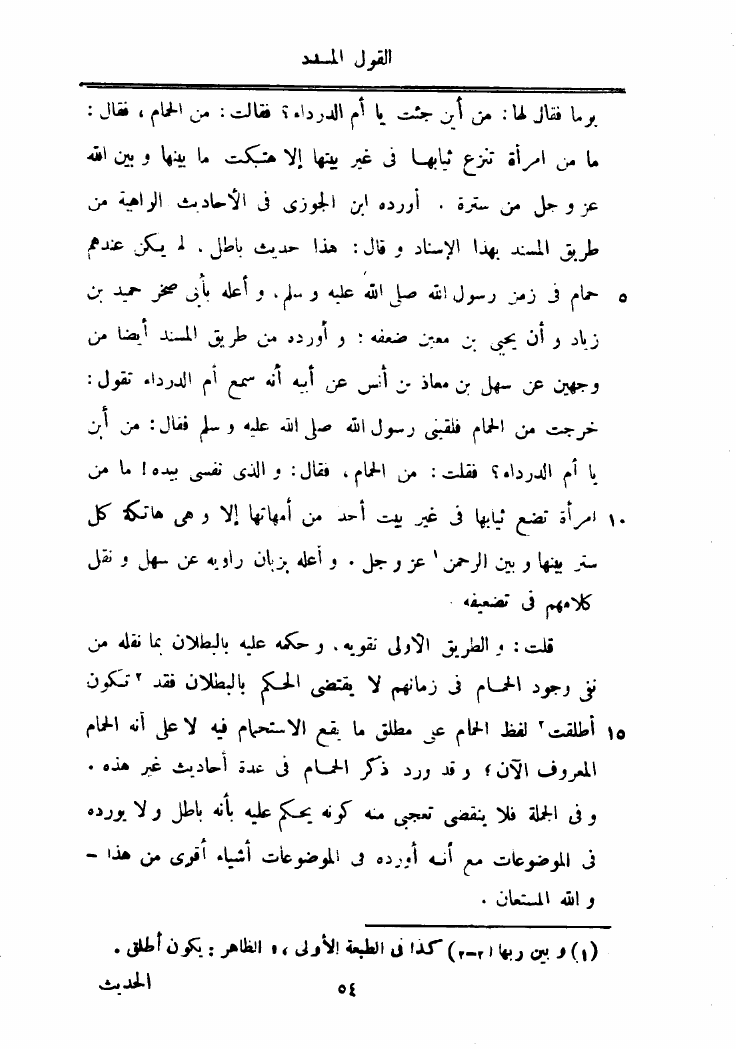 القول المسدد
يوما فقال لها: من أين جئت يا أم الدرداء؟ فقالت: من الحمام، فقال:
ما من امرأة تنزع ثيابها فى غير بيتها إلا هتكت ما بينها و بين الله
عز و جل من سترة . أورده ابن الجوزى فى الأحاديث الواهية من
طريق المسند بهذا الإسناد و قال: هذا حديث باطل. لم يكن عندهم
٥ حمام فى زمن رسول الله صلى الله عليه و سلم. و أعله بأبى صخر حميد بن
زياد و أن يحيى بن معين ضعفه؛ و أورده من طريق المسند أيضا من
وجهين عن سهل بن معاذ بن أنس عن أبيه أنه سمع أم الدرداء تقول:
خرجت من الحمام فلقينى رسول الله صلى الله عليه و سلم فقال: من أين
يا أم الدرداء؟ فقلت: من الحمام، فقال: و الذى نفسى بيده! ما من
١٠ امرأة تضع ثيابها فى غير بيت أحد من أمهاتها إلا و هى هاتكة كل
ستر بينها و بين الرحمن ١ عز و جل . و أعله بزبان راويه عن سهل و نقل
كلامهم فى تضعيفه .
قلت: و الطريق الأولى تقويه، و حكمه عليه بالبطلان بما نقله من
نفى وجود الحمام فى زمانهم لا يقتضى الحكم بالبطلان فقد ٢ تكون
١٥ أطلقت ٢ لفظ الحمام على مطلق ما يقع الاستحمام فيه لا على أنه الحمام
المعروف الآن؛ و قد ورد ذكر الحمام فى عدة أحاديث غير هذه .
و فى الجملة فلا ينقضى تعجبى منه كونه يحكم عليه بأنه باطل و لا يورده
فى الموضوعات مع أنه أورده فى الموضوعات أشياء أقوى من هذا –
و الله المستعان .
(١) و بين ربها (٢-٢) كذا فى الطبعة الأولى، و الظاهر: يكون أطلق .
٥٤ الحديث